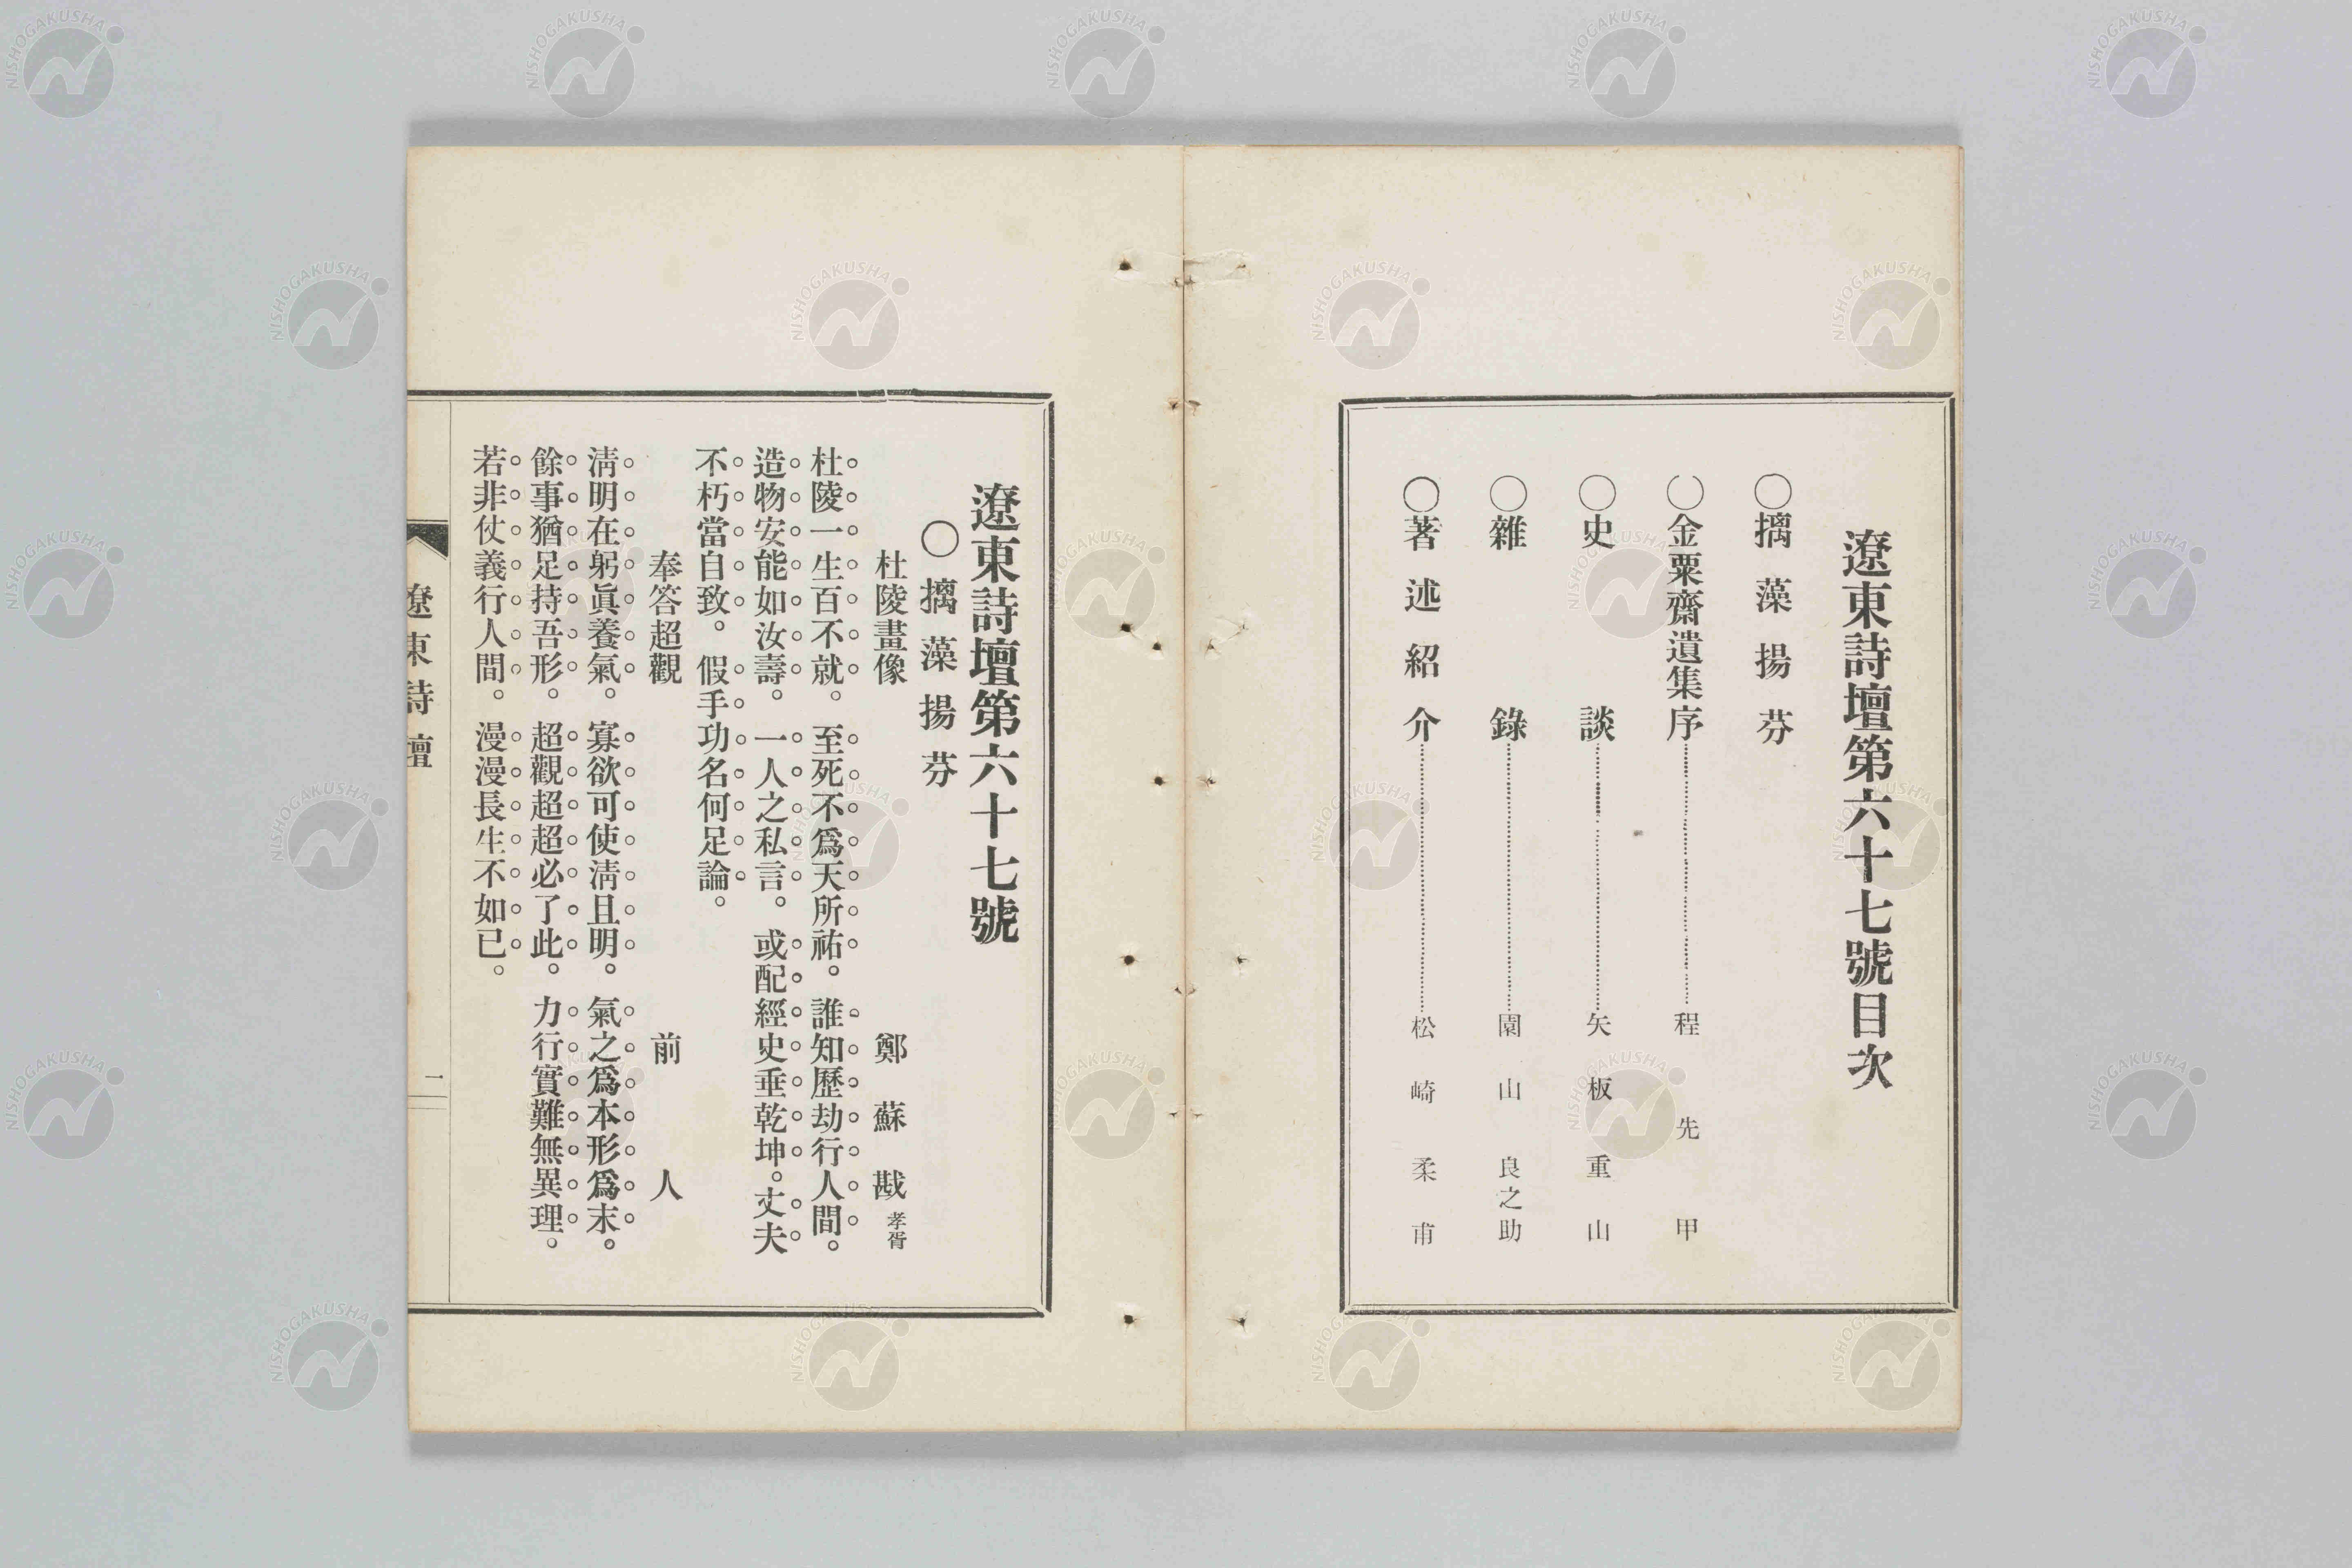 遼東詩壇第六十七號目次
〇摛藻揚芬
〇金粟齋遺集序…………程先甲
〇史談…………矢板重山
〇雜錄…………園山良之助
〇著述紹介…………松崎柔甫
遼東詩壇第六十七號
〇摛藻揚芬
杜陵畫像　鄭蘇戡孝胥
杜陵一生百不就。至死不爲天所祐。誰知歷劫行人間。
造物安能如汝壽。一人之私言。或配經史垂乾坤。丈夫
不朽當自致。假手功名何足論。
奉答超觀　前人
淸明在躬眞養氣。寡欲可使淸且明。氣之爲本形爲末。
餘事猶足持吾形。超觀超超必了此。力行實難無異理。
若非仗義行人間。漫漫長生不如已。
遼東詩壇
一
NISHOGAKUSHA